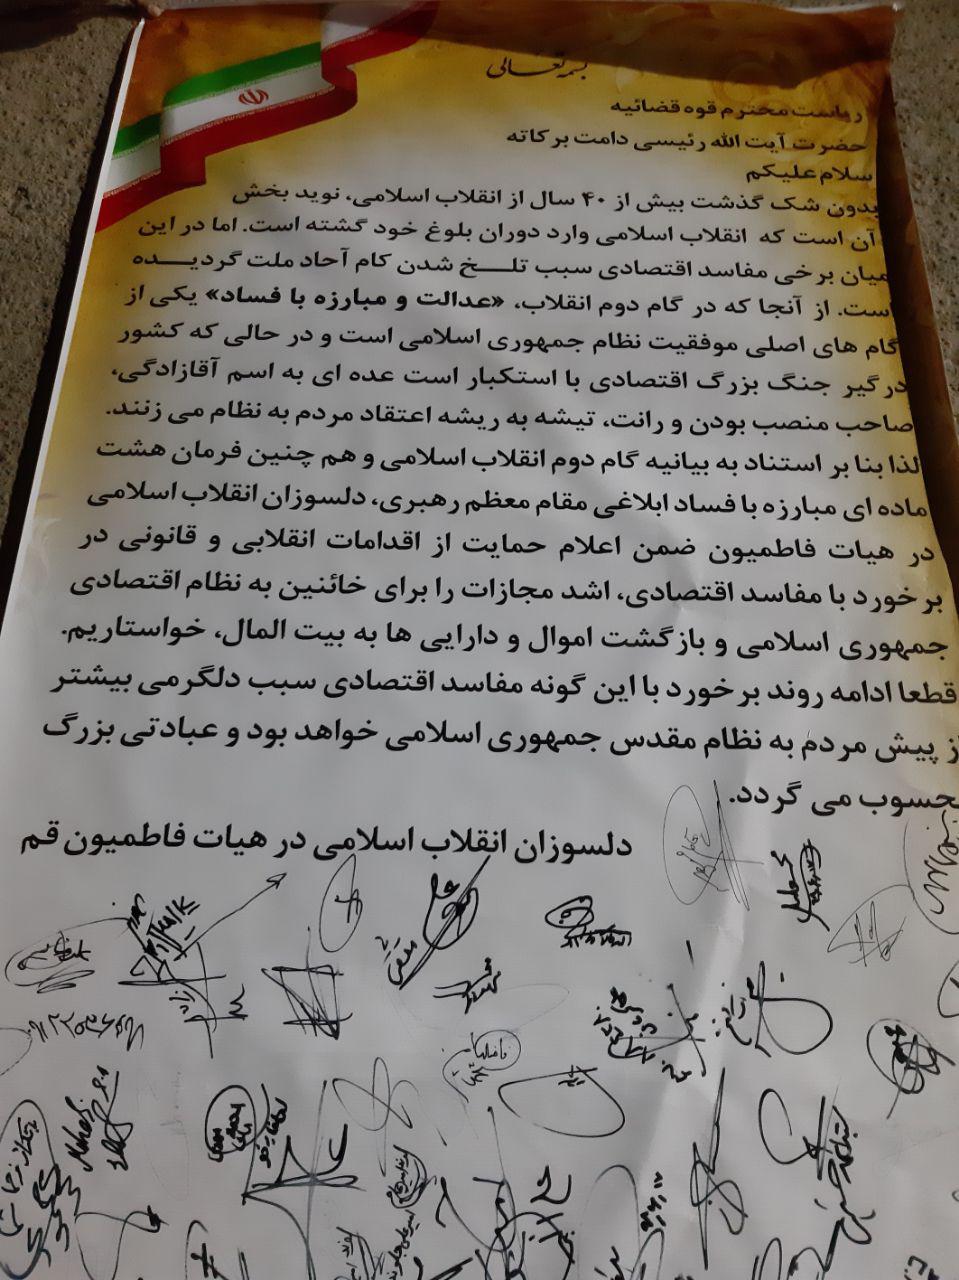 بسمه تعالی
ریاست محترم قوه قضائیه
حضرت آیت الله رئیسی دامت برکاته
سلام علیکم
بدون شک گذشت بیش از ۴۰ سال از انقلاب اسلامی، نوید بخش
آن است که انقلاب اسلامی وارد دوران بلوغ خود گشته است. اما در این
میان برخی مفاسد اقتصادی سبب تلخ شدن کام آحاد ملت گردیده
است. از آنجا که در گام دوم انقلاب، «عدالت و مبارزه با فساد» یکی از
گام های اصلی موفقیت نظام جمهوری اسلامی است و در حالی که کشور
درگیر جنگ بزرگ اقتصادی با استکبار است عده ای به اسم آقازادگی،
صاحب منصب بودن و رانت، تیشه به ریشه اعتقاد مردم به نظام می زنند.
لذا بنا بر استناد به بیانیه گام دوم انقلاب اسلامی و هم چنین فرمان هشت
ماده ای مبارزه با فساد ابلاغی مقام معظم رهبری، دلسوزان انقلاب اسلامی
در هیات فاطمیون ضمن اعلام حمایت از اقدامات انقلابی و قانونی در
برخورد با مفاسد اقتصادی، اشد مجازات را برای خائنین به نظام اقتصادی
جمهوری اسلامی و بازگشت اموال و دارایی ها به بیت المال، خواستاریم.
قطعا ادامه روند برخورد با این گونه مفاسد اقتصادی سبب دلگرمی بیشتر
از پیش مردم به نظام مقدس جمهوری اسلامی خواهد بود و عبادتی بزرگ
محسوب می گردد.
دلسوزان انقلاب اسلامی در هیات فاطمیون قم